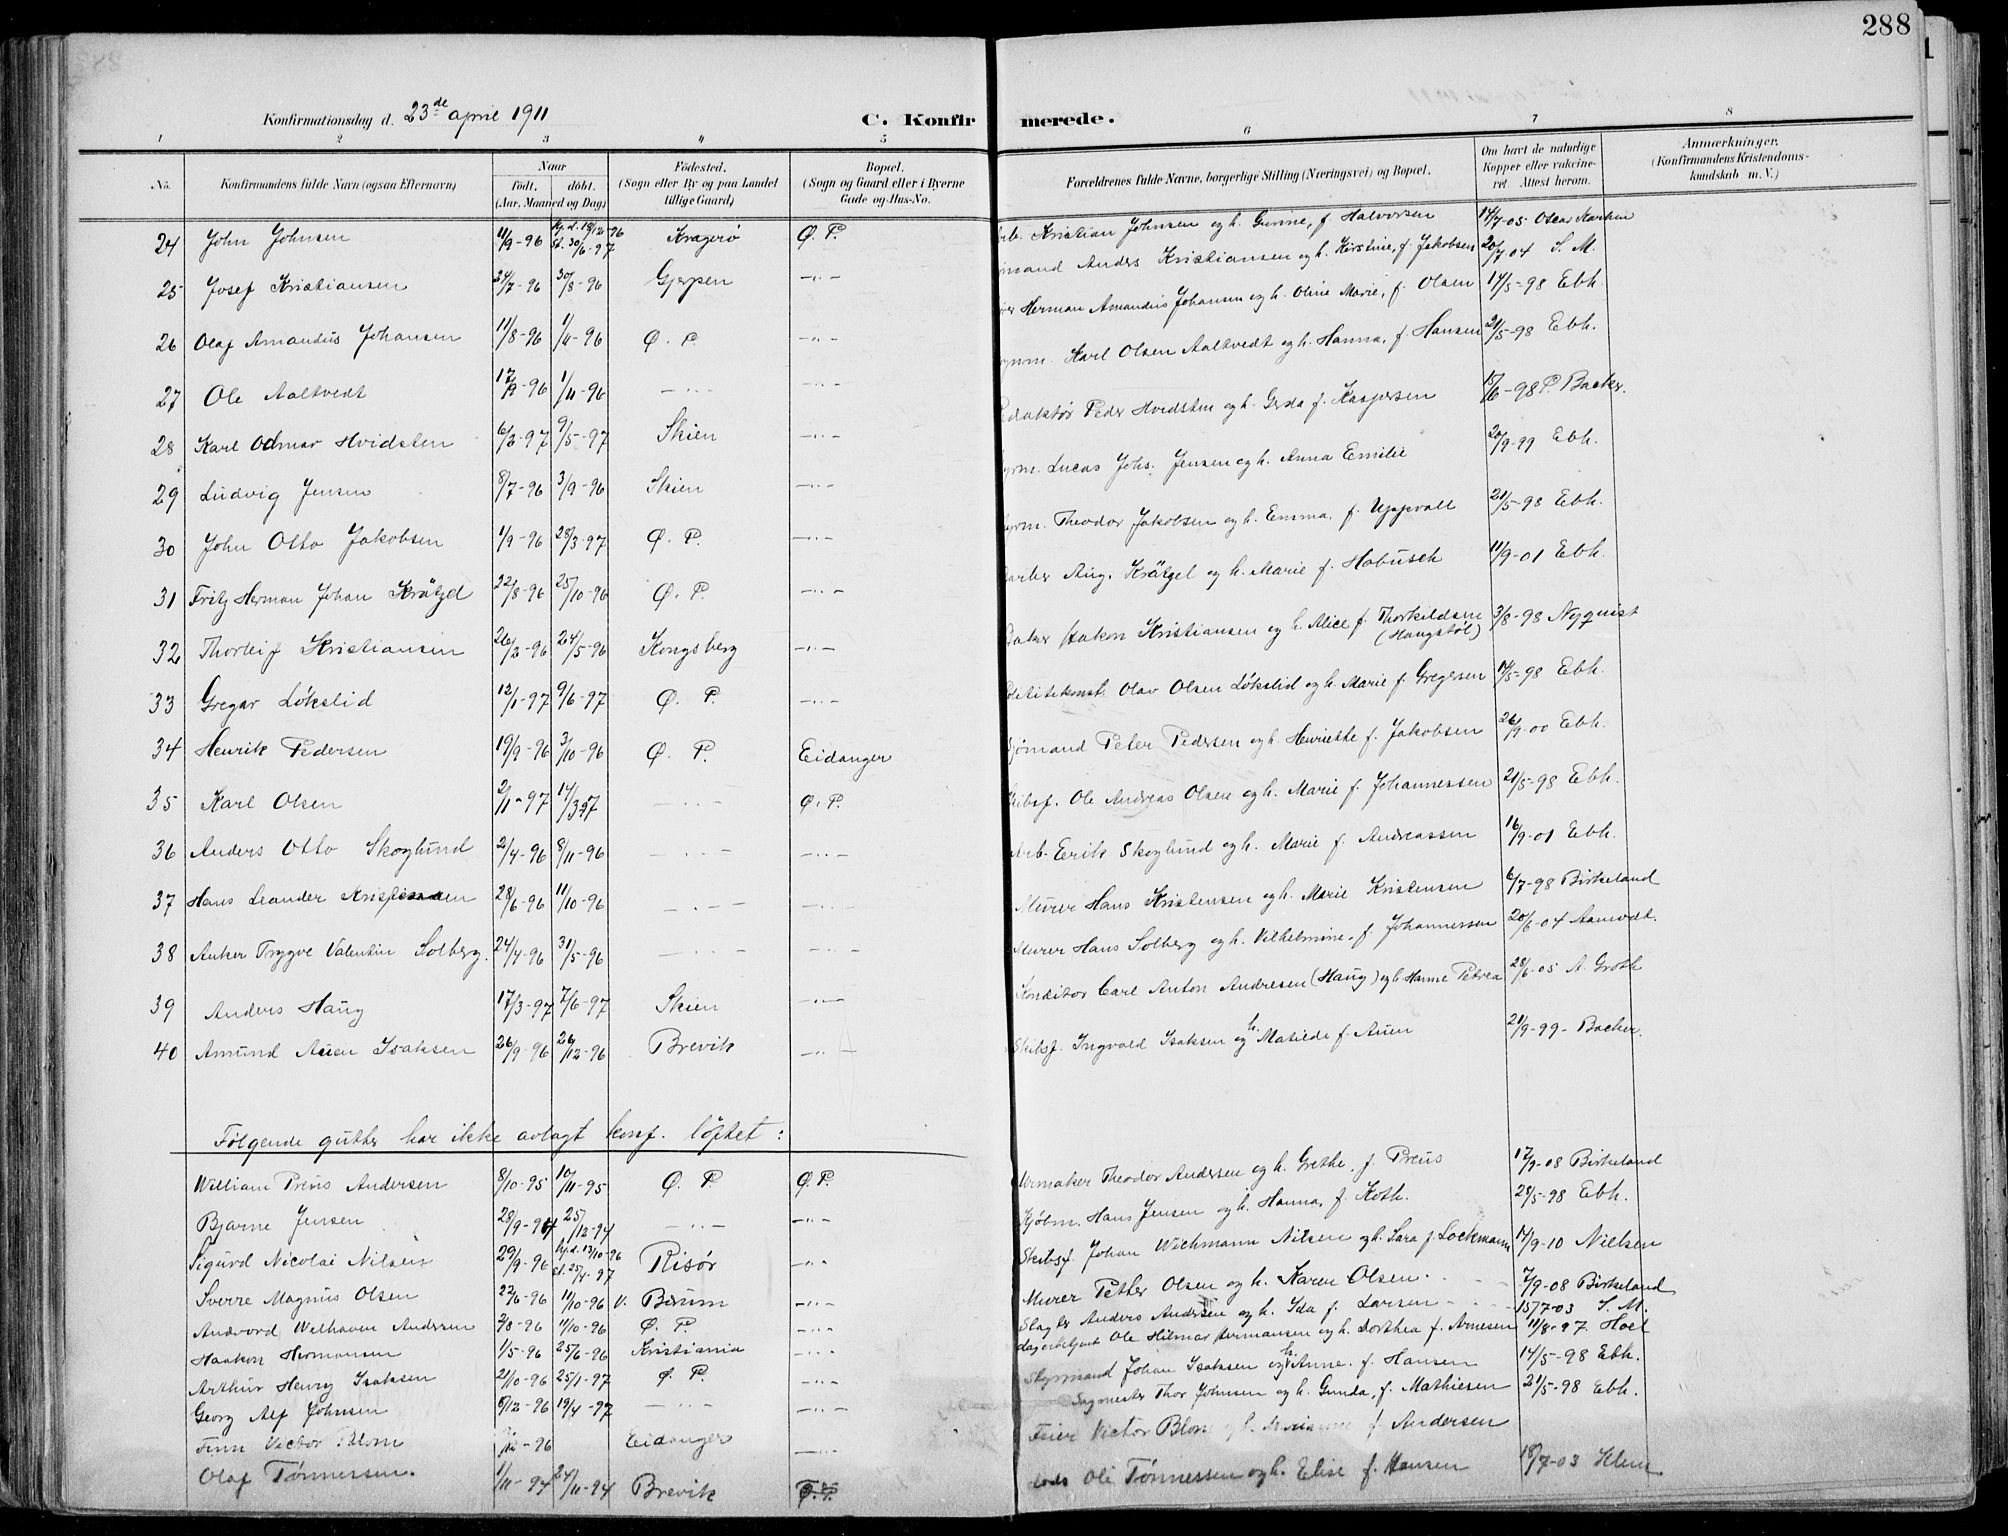 288
Konfirmationsdag d. 23de april 1911
C. Konfirmerede.
1 2 3 4 5 6 7 8
No. Konfirmandens fulde Navn (ogsaa Efternavn) Naar født, døbt. (Aar, Maaned og Dag) Fødested. (Sogn eller By og paa Landet tillige Gaard) Bopæl. (Sogn og Gaard eller i Byerne Gade og Hus-No. Forældrenes fulde Navne, borgerlige Stilling (Næringsvei) og Bopæl. Om havt de naturlige Kopper eller vakcineret. Attest herom. Anmærkninger. (Konfirmandens Kristendomskundskab m. V.)
24 John Johnsen 11/9-96 Hj.d. 19/12-96 St. 30/6-97 Kragerø Ø. P. Arb. Kristian Johnsen og h. Gunne, f. Halvorsen 14/7-05 Oscar
25 Josef Kristiansen 24/7-96 30/8-96 Gjerpen -"- mand Anders Kristiansen og h. Kirstine, f. Jakobsen 20/7 04 S. M.
26 Olaf Amandus Johansen 11/8-96 1/4-96 Ø. P. -"- Herman Amandus Johansen og h. Oline Marie, f. Olsen 14/5-98 Ebh.
27 Ole Aaltvedt 17/9-96 1/11-96 -"- -"- Karl Olsen Aaltvedt og h. Hanna, f. Hansen 21/5-98 Ebh.
28 Karl Odmar Hvidsten 6/2-97 9/5-97 Skien -"- Redaktør Peder Hvidsten og h. Gerda f. Kaspersen 15/6-98 P. Backer.
29 Ludvig Jensen 8/7-96 3/9-96 Skien -"- Lucas Johs. Jensen og h. Anna Emilie 20/9-99 Ebh.
30 John Otto Jakobsen 1/9-96 28/3-97 Ø. P. -"- Theodor Jakobsen og h. Emma, f. Uppvall 21/5-98 Ebh.
31 Fritz Herman Johan Krätzel 22/8-96 25/10-96 Ø. P. -"- Aug. Krätzel og h. Marie f. Habusch 11/9-01 Ebh.
32 Thorleif Kristiansen 26/2-96 24/5-96 Kongsberg -"- Hakon Kristiansen og h. Alice f. Thorkildsen (Haugstøl) 3/8-98 Nyquist
33 Gregar Løkslid 12/1-97 9/6-97 Ø. P. -"- Politikonst. Olav Olsen Løkslid og h. Marie f. Gregersen 14/5-98 Ebh.
34 Henrik Pedersen 19/9-96 3/10-96 Ø. P. Eidanger Sjømand Peter Pedersen og h. Henriette f. Jakobsen 26/9-00 Ebh.
35 Karl Olsen 2/1-97 14/3-97 -"- Ø. P. Skibsf. Ole Andreas Olsen og h. Marie f. Johannessen 21/5-98 Ebh.
36 Anders Otto Skoglund 2/4-96 8/11-96 -"- -"- Arb. Erik Skoglund og h. Marie f. Andreassen 16/9-01 Ebh.
37 Hans Leander 28/6-96 11/10-96 -"- -"- Murer Hans Kristensen og h. Marie Kristensen 6/7-98 Birkeland
38 Anker Trygve Valentin Solberg. 24/4-96 31/5-96 -"- -"- Murer Hans Solberg og h. Vilhelmine, f. Johannessen 20/6-04 Aamodt.
39 Anders Haug 17/3-97 7/6-97 Skien -"- Konditor Carl Anton Andresen (Haug) og h. Hanne Petrea 28/6-05 A. Groth
40 Amund Auen Isaksen 26/9-96 26/12-96 Brevik -"- Skibsf. Ingvald Isaksen og h. Matilde f. Auen 21/9-99- Backer.
Følgende gutter har ikke avlagt konf. løftet:
William Preus Andersen 8/10-95 10/11-95 Ø. P. Ø. P. Urmaker Theodor Andersen og h. Grethe, f. Preus 17/9-08 Birkeland
Bjarne Jensen 28/9-94 25/12-94 -"- -"- Kjøbm. Hans Jensen og h. Hanna, f. Koth. 28/5-98 Ebh.
Sigurd Nicolai Nilsen 29/9-96 Hj.d. 13/10-96 St. 25/4-97 Risør -"- Skibsf. Johan Wichmann Nilsen og h. Sara f. Lockmann 14/9-10 Nielsen
Sverre Magnus Olsen 22/6-96 11/10-96 V. Bærum -"- Murer Petter Olsen og h. Karen Olsen. 7/9-08 Birkeland
Andvord Welhaven Andersen 2/8-96 11/10-96 Ø. P. -"- Slagter Anders Andersen og h. Ida f. Larsen 15/7-03 S. M.
Haakon Hermansen 1/5-96 25/6-96 Kristiania -"- Ole Hilmar Hermansen og h. Dorthea f. Arnesen 11/8-97 Hoel
Arthur Henry Isaksen 21/10-96 25/1-97 Ø. P. -"- Styrmand Johan Isaksen og h. Anne. f. Hansen 14/5-98 Ebh.
Georg Alf Johnsen 6/12-96 19/4-97 -"- -"- Sagmester Thor Johnsen og h. Gunda, f. Mathiesen 21/5-98 Ebh.
Finn Victor Blom /12-96 Eidanger -"- Feier Victor Blom og h. f. Andersen
Olaf Tønnessen. 1/11-94 24/11-94 Brevik Lods Ole Tønnessen og h. Elise f. Hansen 18/7-03 Klem